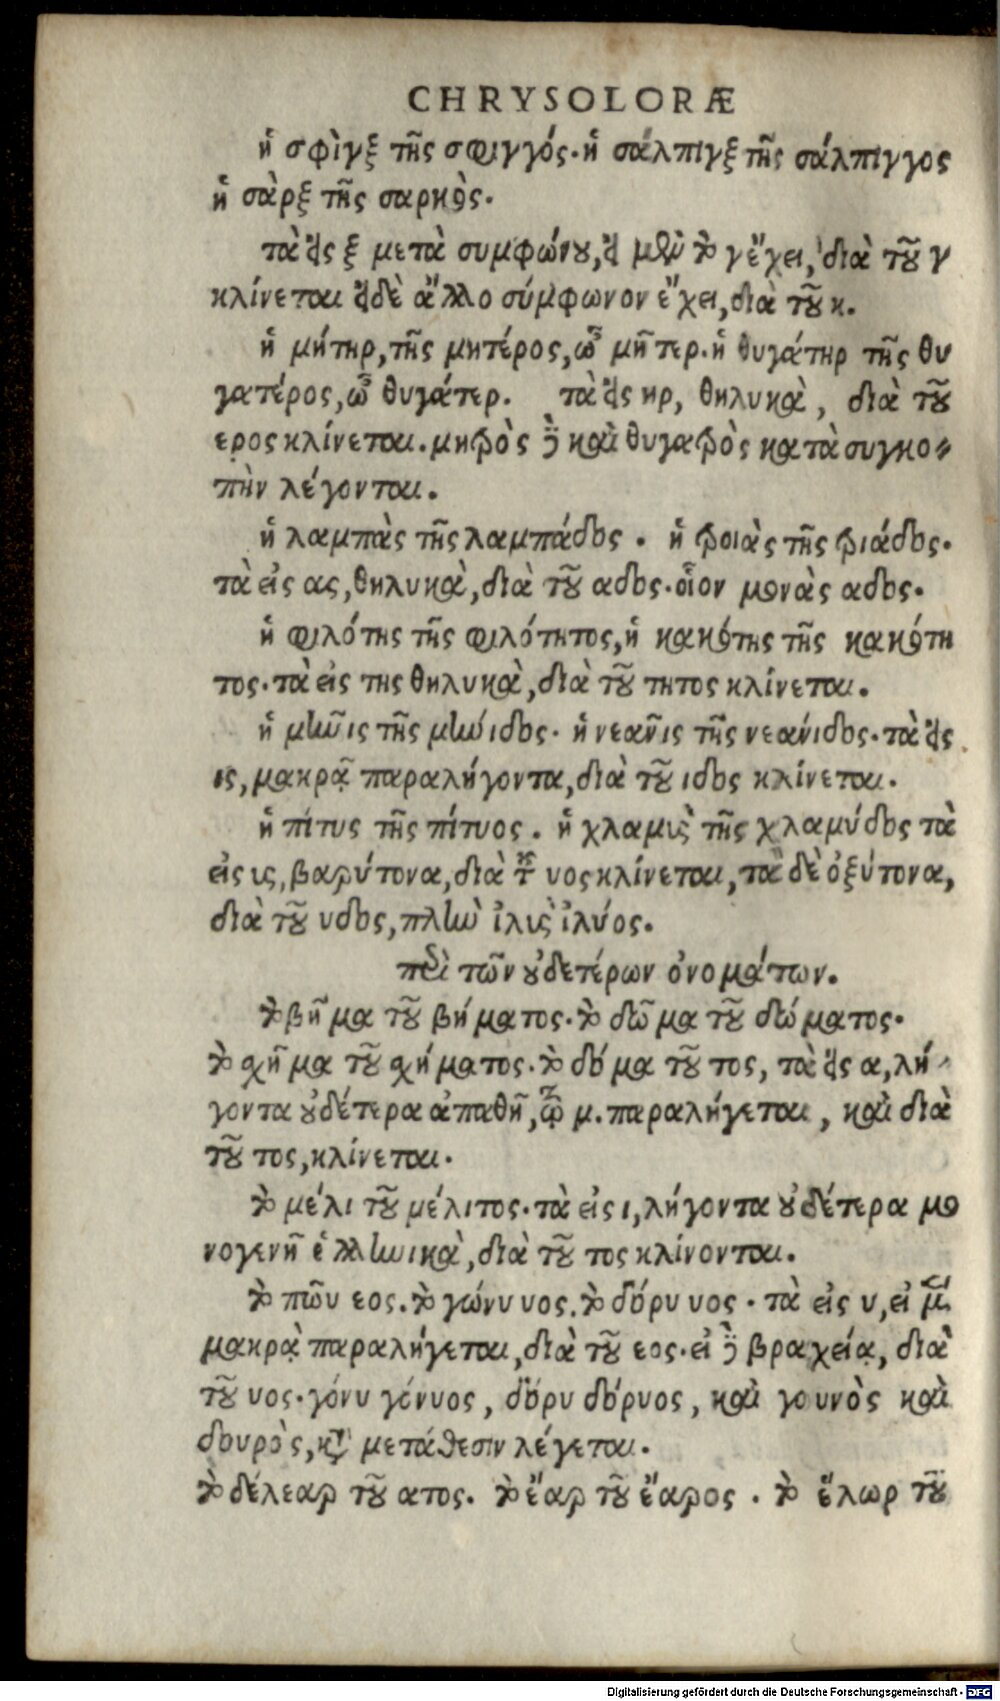 CHRYSOLORÆ
ἡ σφὶγξ τῆς σφιγγός. ἡ σάλπιγξ τῆς σάλπιγγος
ἡ σὰρξ τῆς σαρκὸς.
τὰ εἰς ξ μετὰ συμφώνου, εἰ μὲν τὸ γ ἔχει, διὰ τοῦ γ
κλίνεται εἰ δὲ ἄλλο σύμφωνον ἔχει, διὰ τοῦ κ.
ἡ μήτηρ, τῆς μητέρος, ὦ μῆτερ. ἡ θυγάτηρ τῆς θυ
γατέρος, ὦ θυγάτερ. τὰ εἰς ηρ, θηλυκὰ, διὰ τοῦ
ερος κλίνεται. μητρὸς δὲ καὶ θυγατρὸς κατὰ συγκο-
πὴν λέγονται.
ἡ λαμπὰς τῆς λαμπάδος. ἡ τροιὰς τῆς τριάδος.
τὰ εἰς ας, θηλυκὰ, διὰ τοῦ αδος. οἷον μονὰς αδος.
ἡ φιλότης τῆς φιλότητος, ἡ κακότης τῆς κακότη
τος. τὰ εἰς της θηλυκὰ, διὰ τοῦ τητος κλίνεται.
ἡ μῆνις τῆς μήνιδος. ἡ νεᾶνις τῆς νεανίδος. τὰ εἰς
ις, μακρᾷ παραλήγοντα, διὰ τοῦ ιδος κλίνεται.
ἡ πίτυς τῆς πίτυος. ἡ χλαμὺς τῆς χλαμύδος τὰ
εἰς υς, βαρύτονα, διὰ τοῦ υος κλίνεται, τὰ δὲ ὀξύτονα,
διὰ τοῦ υδος, πλὴν ἰλὺς ἰλύος.
περὶ τῶν οὐδετέρων ὀνομάτων.
τὸ βῆμα τοῦ βήματος. τὸ δῶμα τοῦ δώματος.
τὸ χῆμα τοῦ χήματος. τὸ δόμα τοῦ τος, τὰ εἰς α, λή-
γοντα οὐδέτερα ἀπαθῆ, τῷ μ. παραλήγεται, καὶ διὰ
τοῦ τος, κλίνεται.
τὸ μέλι τοῦ μέλιτος. τὰ εἰς ι, λήγοντα οὐδέτερα μο
νογενῆ ἑλληνικὰ, διὰ τοῦ τος κλίνονται.
τὸ πῶυ εος. τὸ γώνυ υος. τὸ δόρυ υος. τὰ εἰς υ, εἰ μὲν
μακρᾷ παραλήγεται, διὰ τοῦ εος. εἰ δὲ βραχείᾳ, διὰ
τοῦ υος. γόνυ γόνυος, δόρυ δόρυος, καὶ γουνὸς καὶ
δουρὸς, κατὰ μετάθεσιν λέγεται.
τὸ δέλεαρ τοῦ ατος. τὸ ἔαρ τοῦ ἔαρος. τὸ ἕλωρ τοῦ
Digitalisierung gefördert durch die Deutsche Forschungsgemeinschaft - DFG